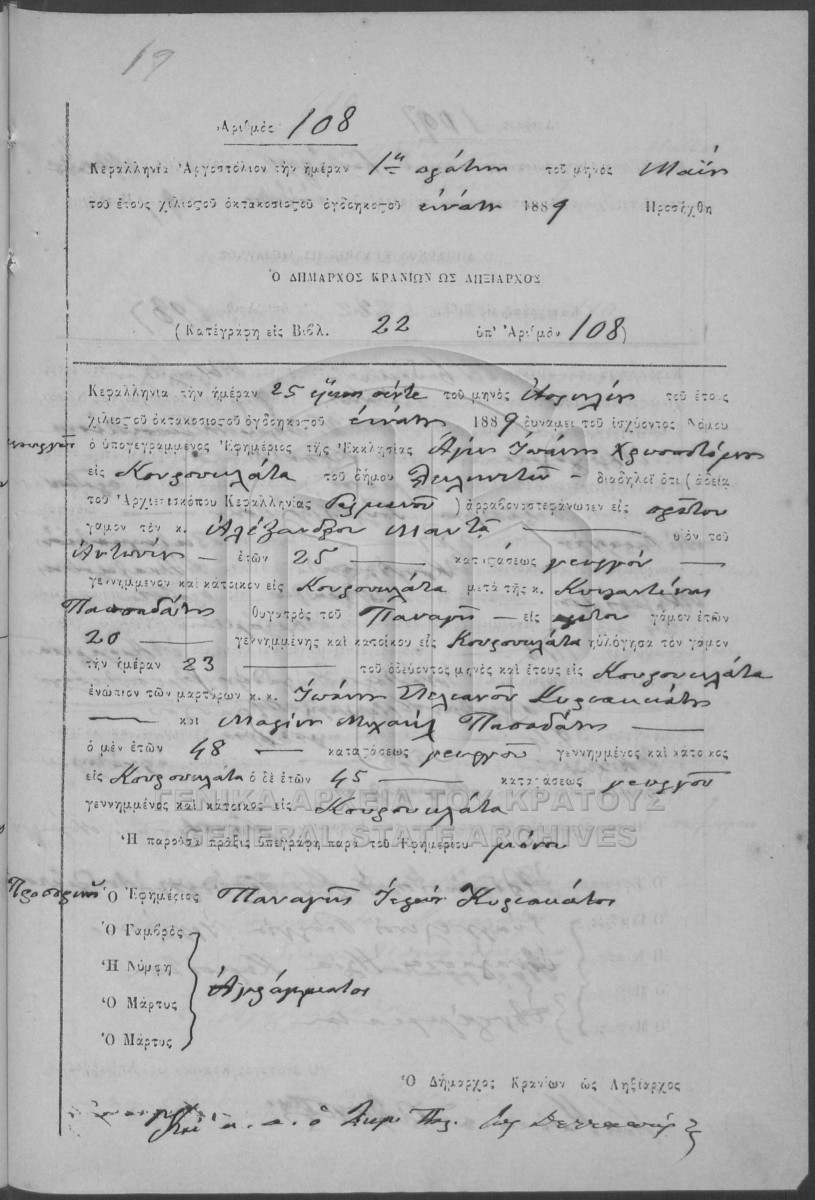 19
Ἀριθμὸς 108
Κεφαλληνία Ἀργοστόλιον τὴν ἡμέραν 1ην πρώτην τοῦ μηνὸς Μαΐου
τοῦ ἔτους χιλιοστοῦ ὀκτακοσιοστοῦ ὀγδοηκοστοῦ ἐννάτου 1889 Προσήχθη
Ὁ ΔΗΜΑΡΧΟΣ ΚΡΑΝΙΩΝ ΩΣ ΛΗΞΙΑΡΧΟΣ
(Κατεγράφη εἰς Βιβλ. 22 ὑπ' Ἀριθμὸν 108)
Κεφαλληνία τὴν ἡμέραν 25 εἴκοσι πέντε τοῦ μηνὸς Ἀπριλίου τοῦ ἔτους
χιλιοστοῦ ὀκτακοσιοστοῦ ὀγδοηκοστοῦ ἐννάτου 1889 δυνάμει τοῦ ἰσχύοντος Νόμου
ὁ ὑπογεγραμμένος Ἐφημέριος τῆς Ἐκκλησίας Ἁγίου Ἰωάννου Χρυσοστόμου
εἰς Κουρουκλάτα τοῦ δήμου διαδηλοῖ ὅτι (ἀδείᾳ
τοῦ Ἀρχιεπισκόπου Κεφαλληνίας Γερμανοῦ) ἀρραβωνοστεφάνωσεν εἰς πρῶτον
γάμον τὸν κ. Ἀλέξανδρον υἱὸν τοῦ
Ἀντωνίου ἐτῶν 25 καταστάσεως γεωργὸν
γεννημμένον καὶ κάτοικον εἰς Κουρουκλάτα μετὰ τῆς κ. Κωνσταντίνας
Παπαδάτου θυγατρὸς τοῦ Παναγῆ εἰς πρῶτον γάμον ἐτῶν
20 γεννημμένης καὶ κατοίκου εἰς Κουρουκλάτα ηὐλόγησα τὸν γάμον
τὴν ἡμέραν 23 τοῦ ὁδεύοντος μηνὸς καὶ ἔτους εἰς Κουρουκλάτα
ἐνώπιον τῶν μαρτύρων κ. κ. Ἰωάννου Στυλιανοῦ Κυριακάτου
καὶ Μαρίνου Μιχαὴλ Παπαδάτου
ὁ μὲν ἐτῶν 48 καταστάσεως γεωργοῦ γεννημμένος καὶ κάτοικος
εἰς Κουρουκλάτα ὁ δὲ ἐτῶν 45 καταστάσεως γεωργοῦ
γεννημμένος καὶ κάτοικος εἰς Κουρουκλάτα
ΓΕΝΙΚΑ ΑΡΧΕΙΑ ΤΟΥ ΚΡΑΤΟΥΣ
GENERAL STATE ARCHIVES
Ἡ παροῦσα πρᾶξις ὑπεγράφη παρὰ τοῦ Ἐφημερίου μόνου
Προσωρινὸς Ὁ Ἐφημέριος Παναγῆς Ἱερεὺς Κυριακάτος
Ὁ Γαμβρὸς
Ἡ Νύμφη
Ἀγράμματοι
Ὁ Μάρτυς
Ὁ Μάρτυς
Ὁ Δήμαρχος Κρανίων ὡς Ληξίαρχος